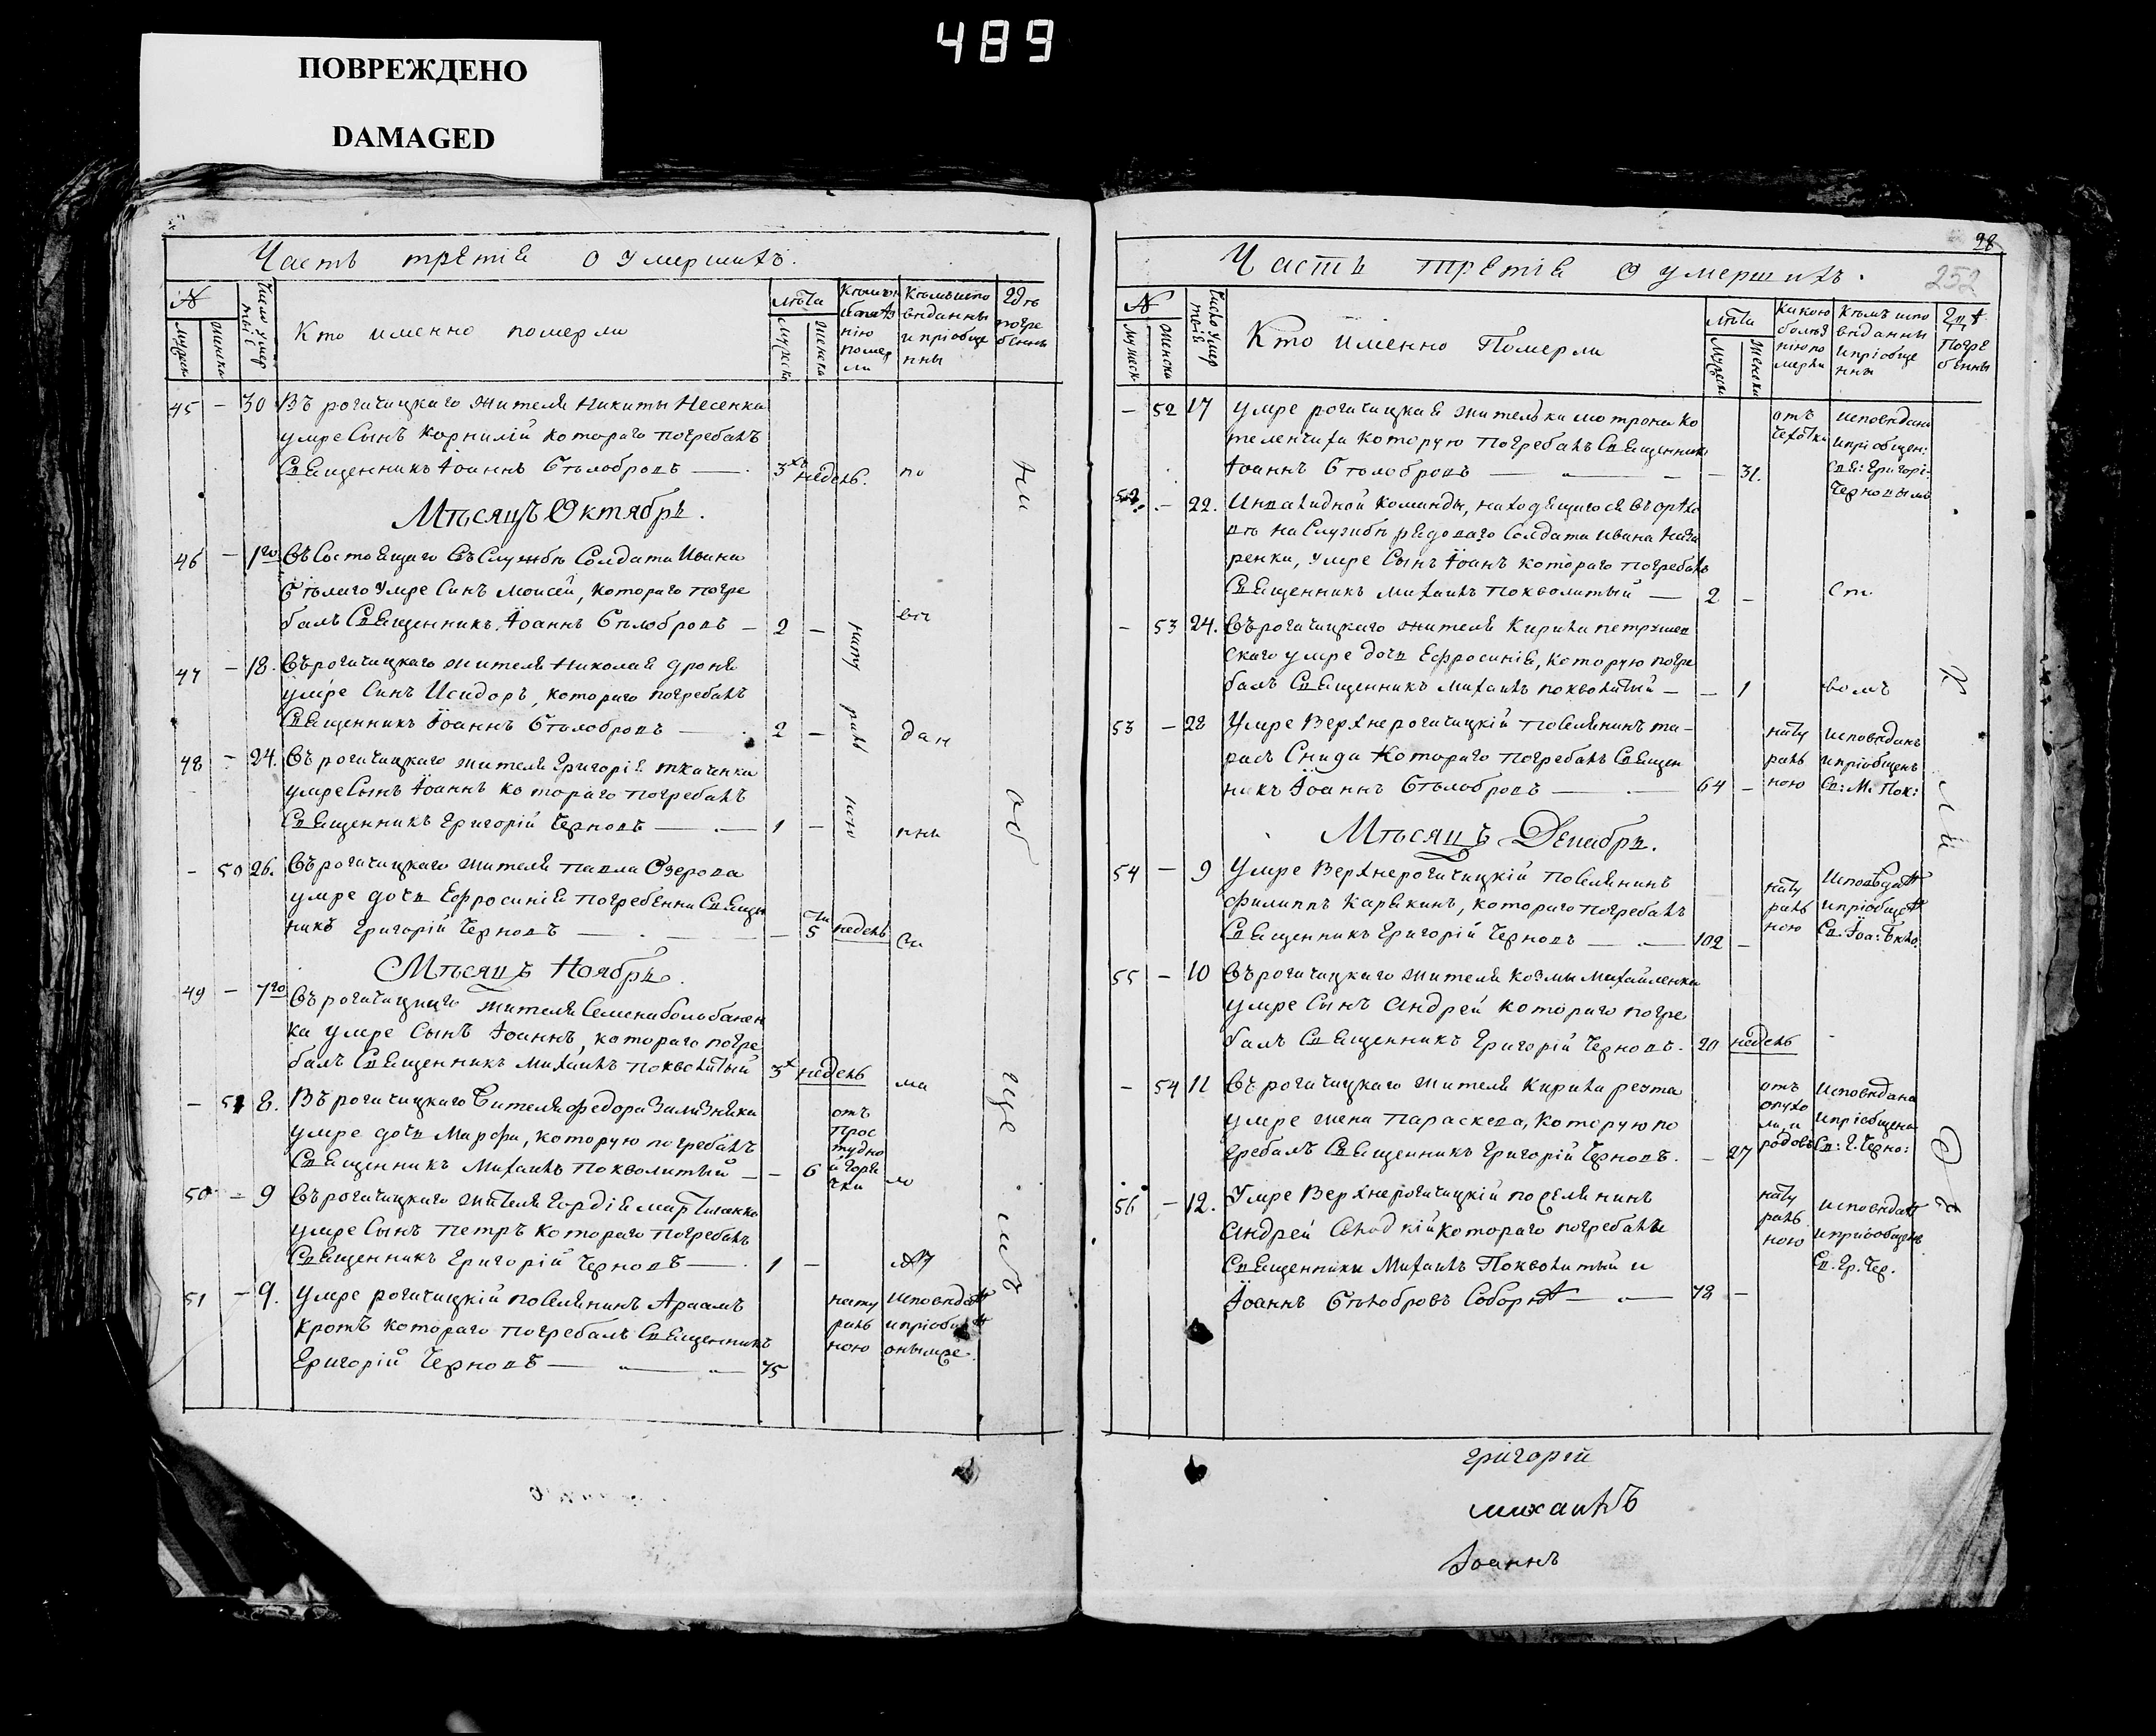 489
ПОВРЕЖДЕНО
DAMAGED
Часть третія о умершихъ.
№
Число умертвія
Кто именно померли
Лѣта
Мужеска
Женска
Кѣмъ исповѣданны и пріобщенны
Гдѣ погребенны
45 – 30 Въ рогачицкаго жителя Никиты Несенка
умре Сынъ Корнилій котораго погребалъ
Священникъ Іоаннъ Бѣлобровъ — 3хъ недель.
Мѣсяцъ Октябрь.
46 – 1го Въ Состоящаго Въ Службѣ Солдата Ивана
Бѣлаго умре Синъ Моисей, котораго погре
балъ Священникъ Іоаннъ Бѣлобровъ – 2 –
47 – 18. Въ рогачицкаго жителя Николая дроня
умре Синъ Исидоръ, котораго погребалъ
Священникъ Іоаннъ Бѣлобровъ — 2 –
48 – 24. Въ рогачицкаго жителя Григорія ткаченка
умре Сынъ Іоаннъ котораго погребалъ
Священникъ Григорій Черновъ — 1 –
– 50 26. Въ рогачицкаго жителя павла Озерова
умре дочь Ефросинія погребенна Священ
никъ Григорій Черновъ — – 5ти недель
Мѣсяцъ Ноябрь.
49 – 7го Въ рогачицкаго жителя Семена болбачен
ка умре Сынъ Іоаннъ, котораго погре
балъ Священникъ Михаилъ Поквалитый 3х недель
– 51 8. Въ рогачицкаго жителя федора Зализняка
умре дочь Марфа, которую погребалъ
Священникъ Михаилъ Поквалитый – – 6
отъ
прос
тудно
й горя
чки
50 – 9 Въ рогачицкаго жителя Гордія мартиненка
умре Сынъ Петръ котораго погребалъ
Священникъ Григорій Черновъ — 1 –
51 – 9. Умре рогачицкій поселянинъ Аврамъ
Кротъ котораго погребалъ Священникъ
Григорій Черновъ — 75
нату
раль
ною
исповѣданъ
и пріобщенъ
онымже
28
252
Часть третія о умершихъ.
№
Число умертвія
Кто именно Померли
Лѣта
Мужеска
Женска
Какою болѣзнію померли
Кѣмъ исповѣданны и пріобщенны
Гдѣ Погребенны
– 52 17 Умре рогачицкая жителька мотрона Ко
теленчиха которую погребалъ Священникъ
Іоаннъ Бѣлобровъ — – 31.
отъ
чехотки
исповѣдана
и пріобщен:
Свя: Григорі:
Черновымъ
52. – 22. Инвалидной Команды, находящагося въ
на Службѣ рядоваго Солдата Ивана
ренка, умре Сынъ Іоанъ котораго погребалъ
Священникъ Михаилъ Поквалитый — 2 –
– 53 24. Въ рогачицкаго жителя Кирила петрушев
скаго умре дочь Ефросинія, которую погре
балъ Священникъ Михаилъ Поквалитый – – 1
53 – 28 Умре Верхнерогачицкій поселянинъ та-
расъ Снида Котораго погребалъ Священ
никъ Іоаннъ Бѣлобровъ — 64 –
нату
раль
ною
исповѣданъ
и пріобщенъ
Св: М. Пок:
Мѣсяцъ Декабрь.
54 – 9 Умре Верхнерогачицкій поселянинъ
Филиппъ Карякинъ, котораго погребалъ
Священникъ Григорій Черновъ — 102 –
нату
раль
ною
Исповѣданъ
и пріобщенъ
Св. Іоа: Бѣло
55 – 10 Въ рогачицкаго жителя Козмы Михайленка
умре Сынъ Андрей котораго погре
балъ Священникъ Григорій Черновъ. 20 недель
– 54 11 Въ рогачицкаго жителя Кирила
умре жена Параскева, которую по
гребалъ Священникъ Григорій Черновъ. – 27
отъ
опухо
ли и
родовъ
Исповѣдана
и пріобщена
Св: Г. Черно:
56 – 12. Умре Верхнерогачицкій поселянинъ
Андрей котораго погребалъ
Священники Михаилъ Поквалитый и
Іоаннъ Бѣлобровъ Соборнѣ — 78 –
нату
раль
ною
исповѣданъ
и пріобщенъ
Св. Гр. Чер.
Григорій
михаилъ
Іоаннъ